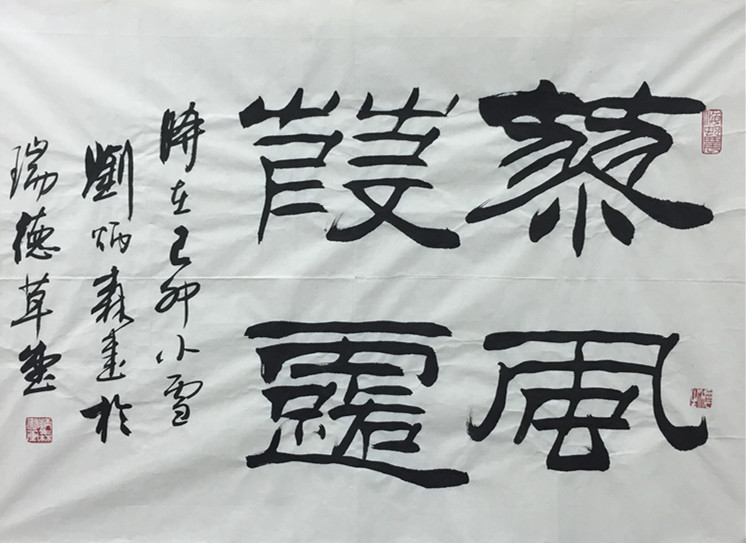 蒹葭
風露
時在己卯小雪
劉炳森書於
瑞德草堂